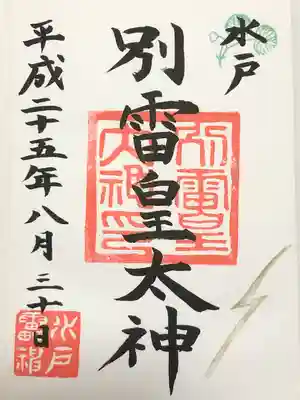 水戸
別雷皇太神
平成二十五年八月三十日
別雷皇
太神印
水戸
雷神